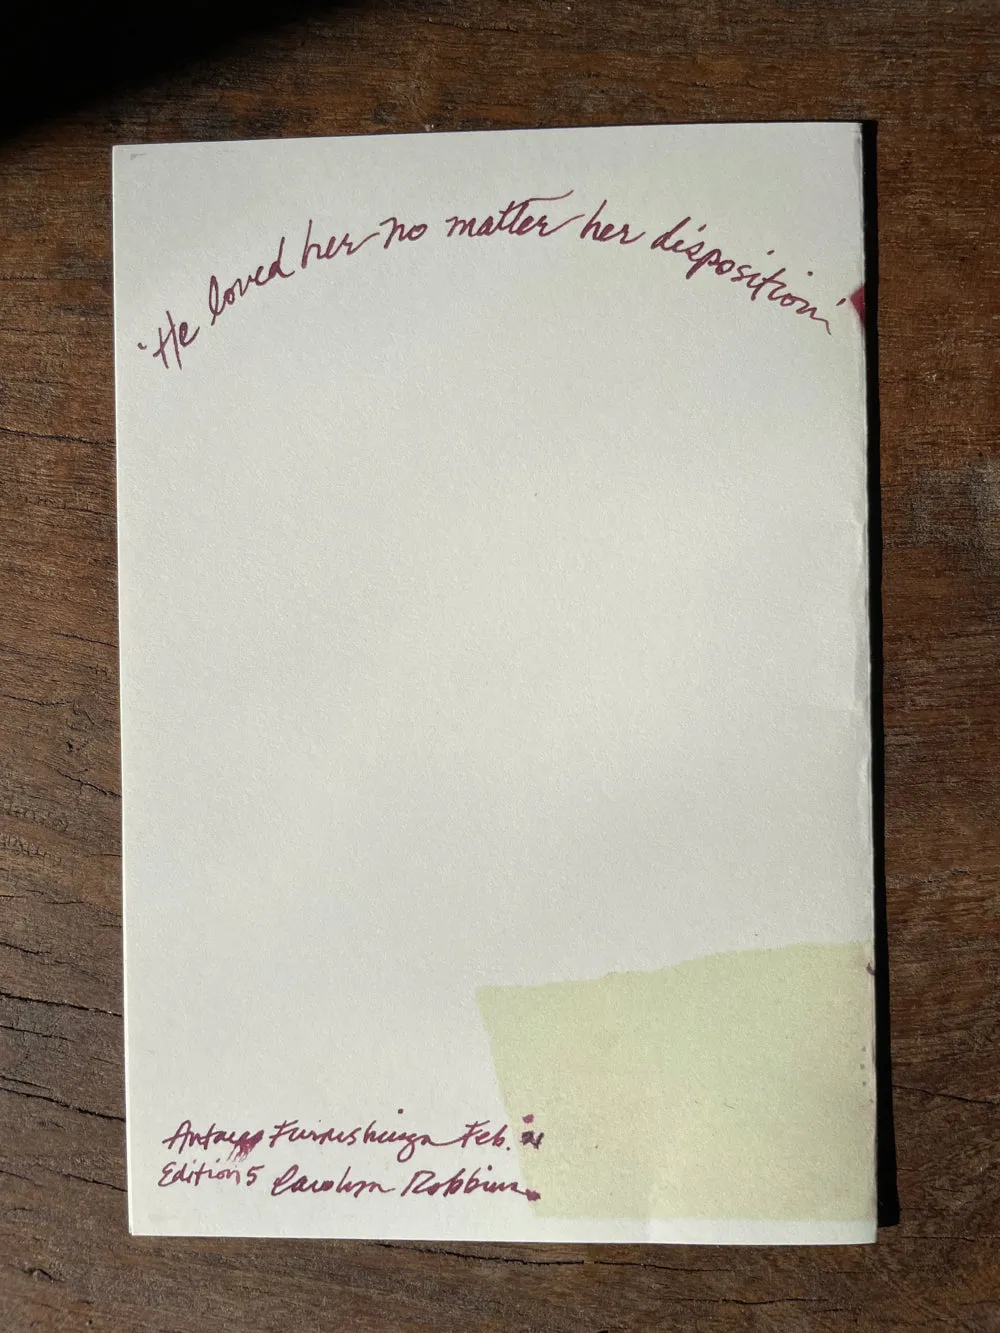 'He loved her no matter her disposition'
Furnishings Feb. 21
Edition 5 Carolyn Robbins